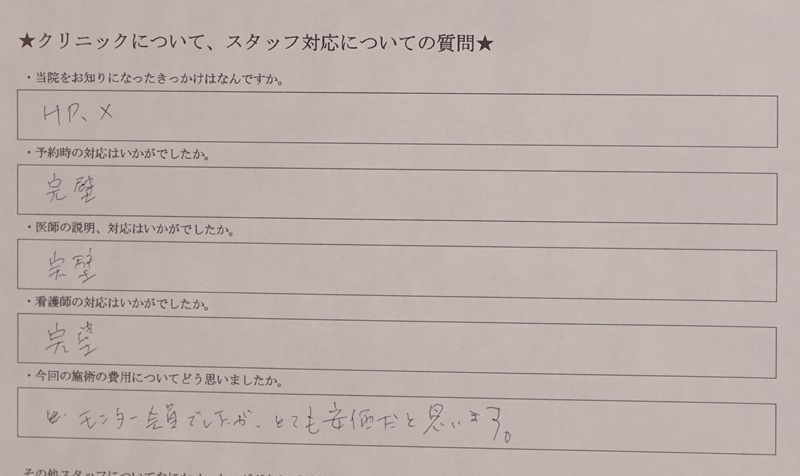 ★クリニックについて、スタッフ対応についての質問★
・当院をお知りになったきっかけはなんですか。
HP、X
・予約時の対応はいかがでしたか。
完璧
・医師の説明、対応はいかがでしたか。
完璧
・看護師の対応はいかがでしたか。
完璧
・今回の施術の費用についてどう思いましたか。
モニター会員でしたが、とても安価だと思います。
その他スタッフについてなにか